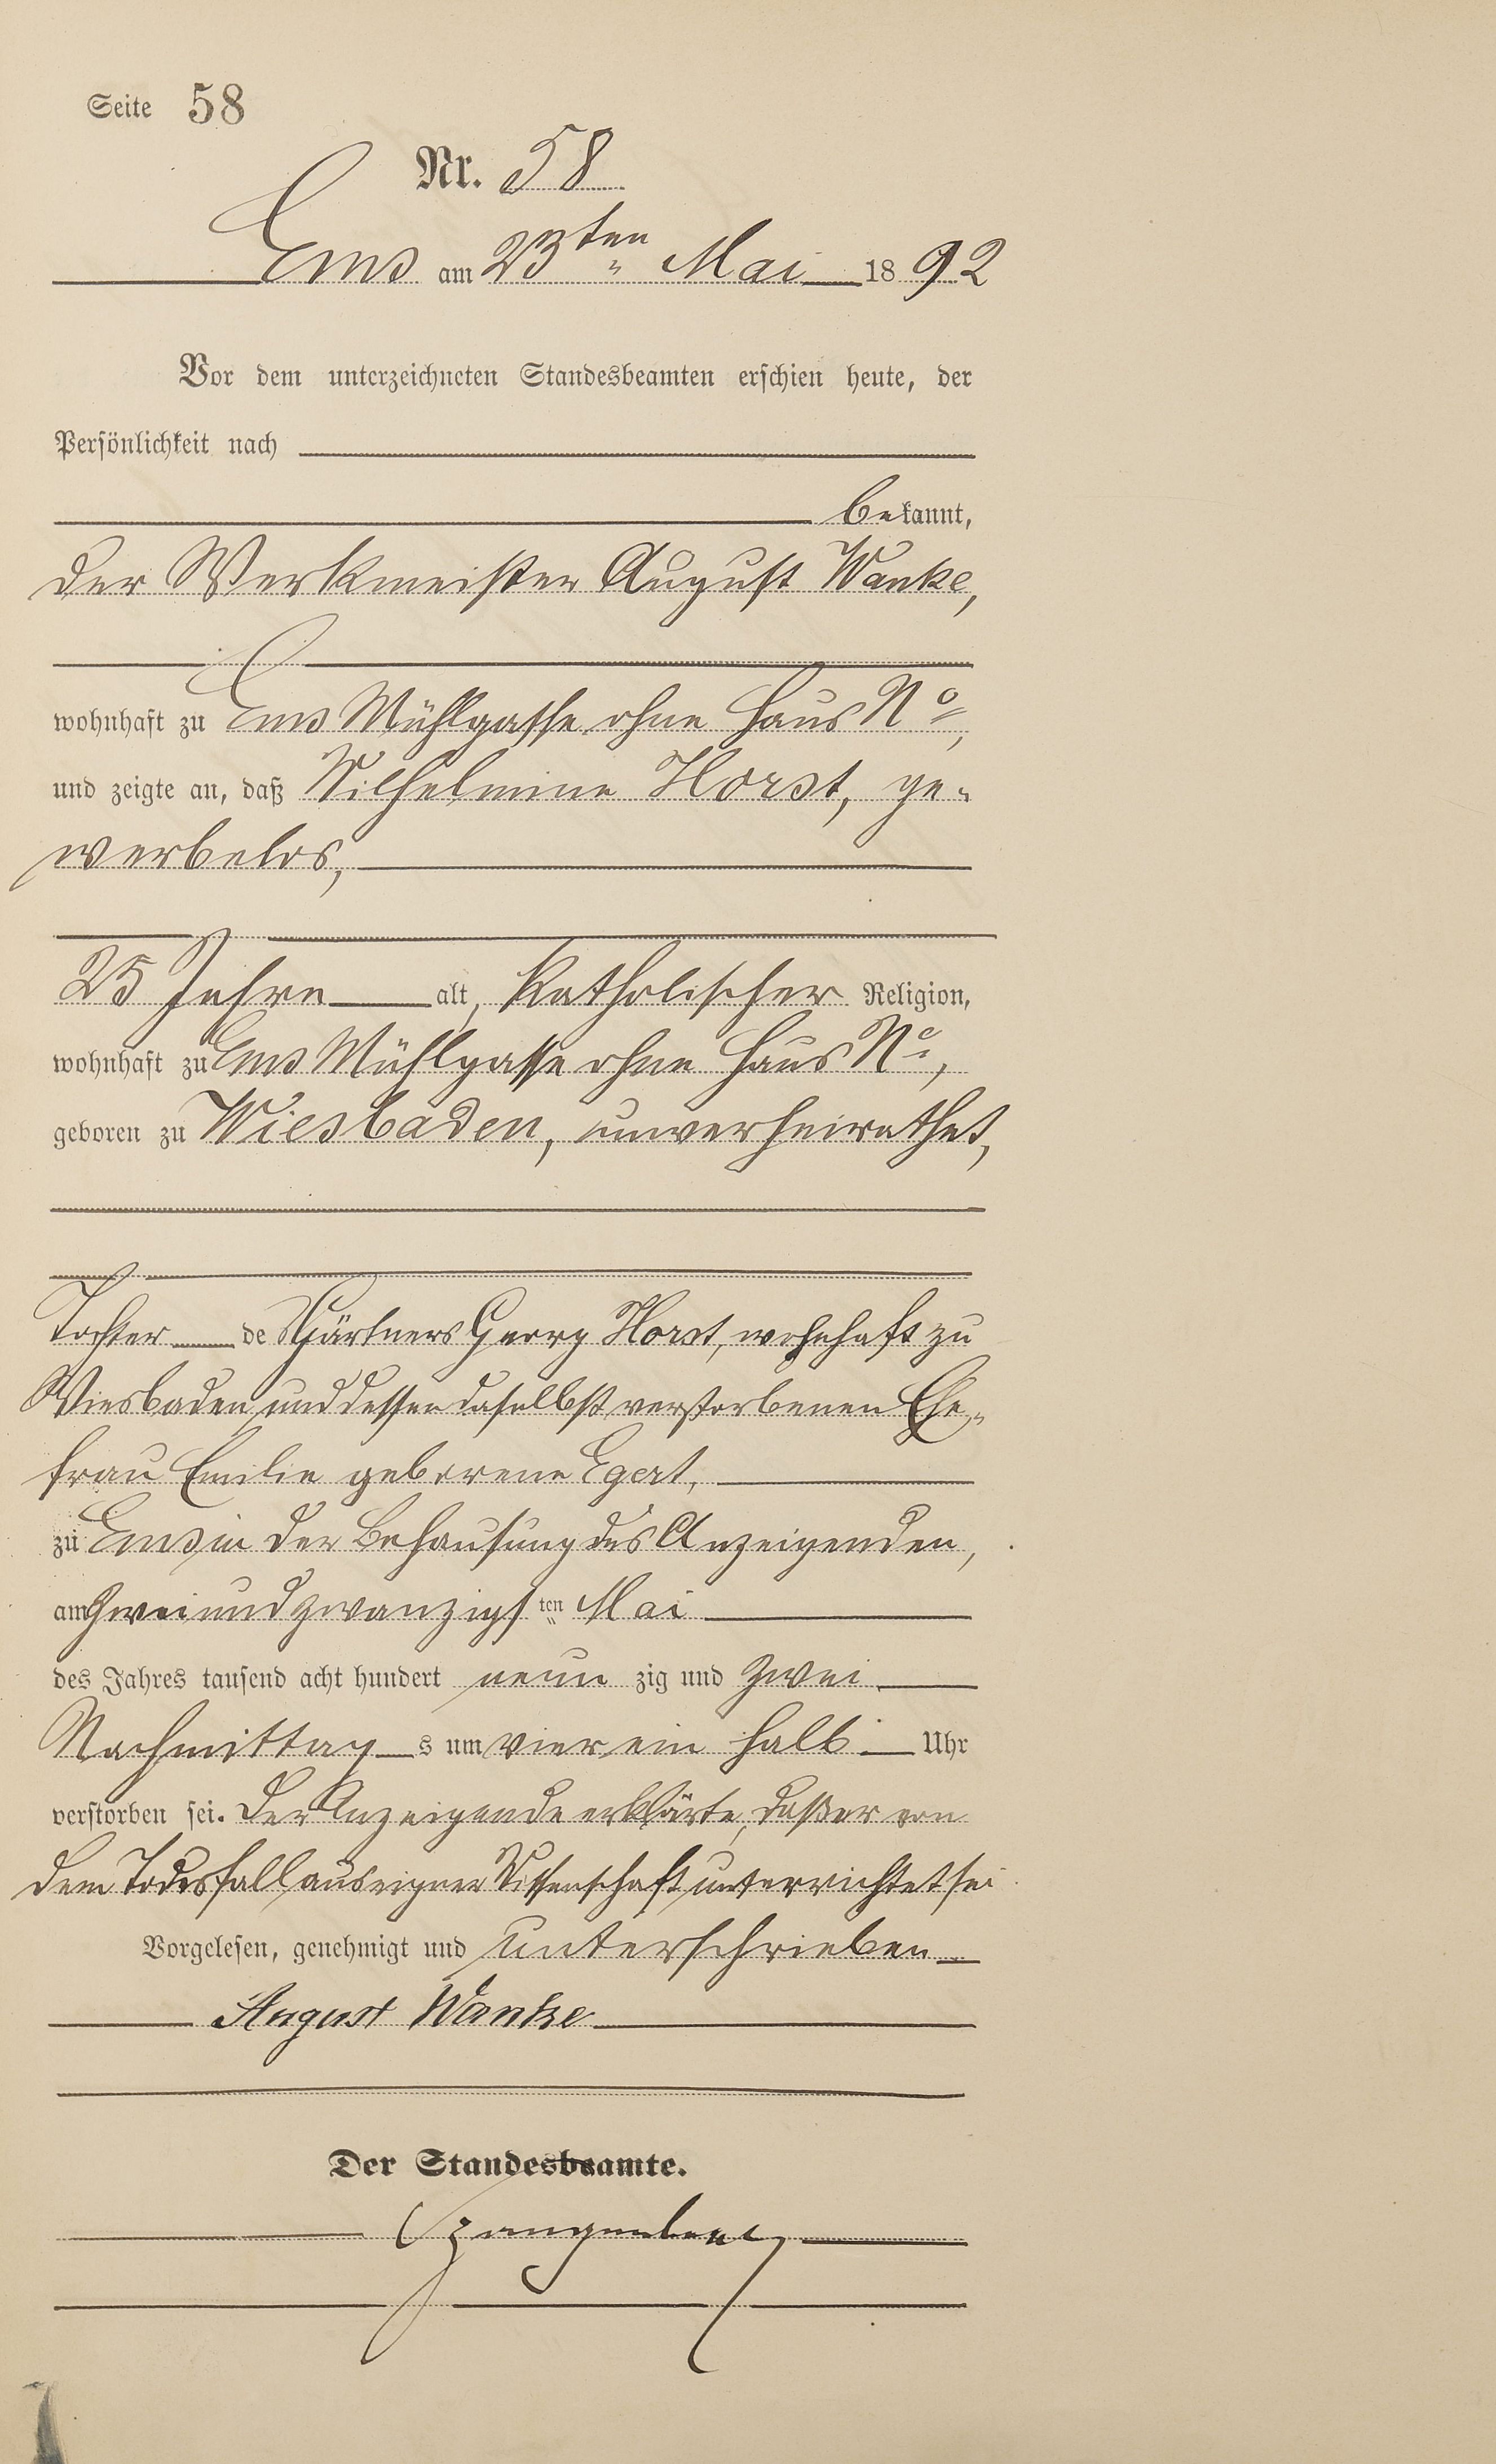 Seite 58
Nr. 58
Ems am 23ten Mai 1892
Vor dem unterzeichneten Standesbeamten erschien heute, der
Persönlichkeit nach
bekannt,
der Werkmeister August Wanke,
wohnhaft zu Ems Mühlgasse ohne Haus No,
und zeigte an, daß Wilhelmine Horst, ge-
werbelos,
25 Jahre alt, katholischer Religion,
wohnhaft zu Ems Mühlgasse ohne Haus No,
geboren zu Wiesbaden, unverheirathet,
Tochter des Gärtners Georg Horst, wohnhaft zu
Wiesbaden und dessen daselbst verstorbenen Ehe-
frau Emilie geborene Egert,
zu Ems in der Behausung des Anzeigenden,
am zwei und zwanzigsten Mai
des Jahres tausend acht hundert neunzig und zwei
Nachmittags um vier ein halb Uhr
verstorben sei. Der Anzeigende erklärte, daß er von
dem Todesfall aus eigner Wissenschaft unterrichtet sei
Vorgelesen, genehmigt und unterschrieben
August Wanke
Der Standesbeamte.